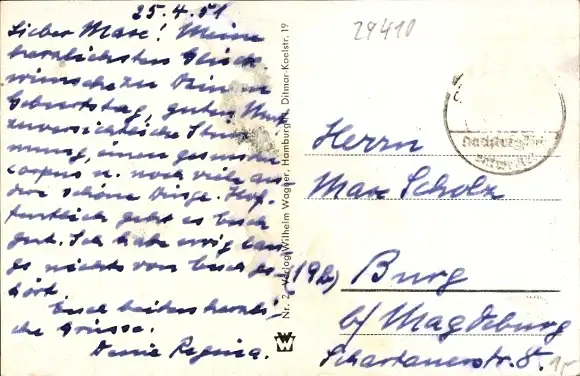 25.4.51
Lieber Max! Meine
herzlichsten Glück-
wünsche zu Deinem
Geburtstag, guten Mut
zuversichtliche Stim-
mung, einen gesunden
Corpus u. noch viele an-
dre schöne Dinge. Hof-
fentlich geht es Euch
gut. Ich habe ewig lan-
ge nichts von Euch ge-
hört.
Euch beiden herzli-
che Grüsse.
Deine Regina.
Nr. 2 Verlag Wilhelm Wagner, Hamburg Ditmar-Koelstr. 19
29410
Herrn
Max Scholz
(19b) Burg
b/ Magdeburg
Schartauerstr. 8.